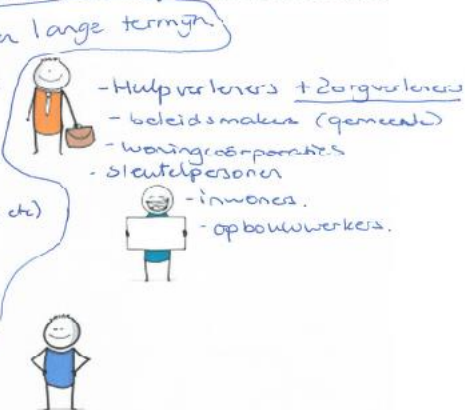 lange termijn
- Hulpverleners + Zorgverleners
- beleidsmakers (gemeente)
- woningcorporaties
- sleutelpersonen
etc)
- inwoners.
- opbouwwerkers.